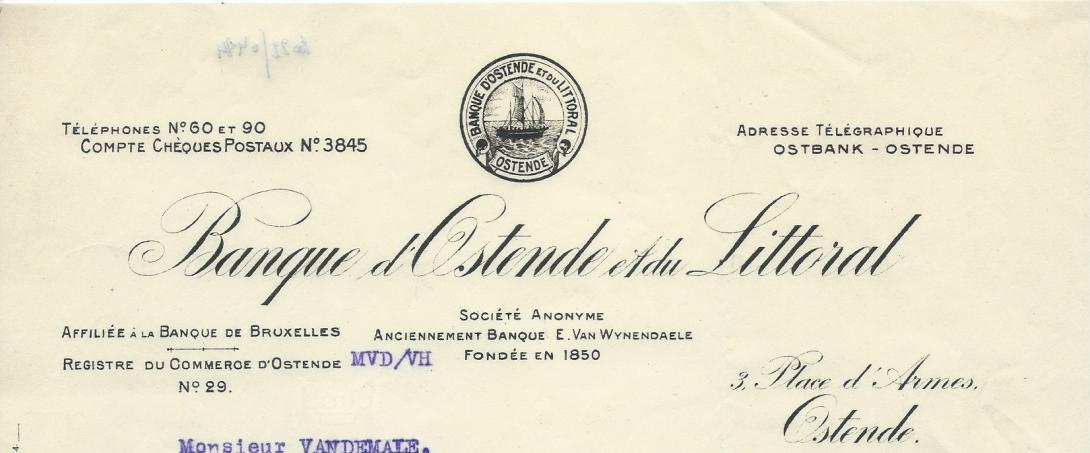 BANQUE D'OSTENDE ET DU LITTORAL
OSTENDE
TÉLÉPHONES Nº 60 ET 90
COMPTE CHÈQUES POSTAUX Nº 3845
ADRESSE TÉLÉGRAPHIQUE
OSTBANK - OSTENDE
Banque d'Ostende et du Littoral
SOCIÉTÉ ANONYME
ANCIENNEMENT BANQUE E. VAN WYNENDAELE
FONDÉE EN 1850
AFFILIÉE À LA BANQUE DE BRUXELLES
REGISTRE DU COMMERCE D'OSTENDE
Nº 29.
MVD/VH
3, Place d'Armes.
Ostende.
Monsieur VANDEMALE.